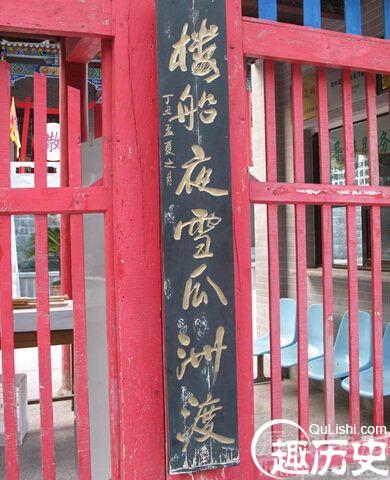 楼船夜雪瓜洲渡
丁丑孟夏之月
QuLishi.com
趣历史